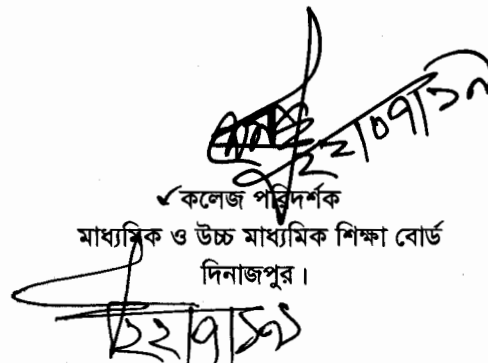 ২২|০৭|১৯
কলেজ পরিদর্শক
মাধ্যমিক ও উচ্চ মাধ্যমিক শিক্ষা বোর্ড
দিনাজপুর।
২২|৭|১৯